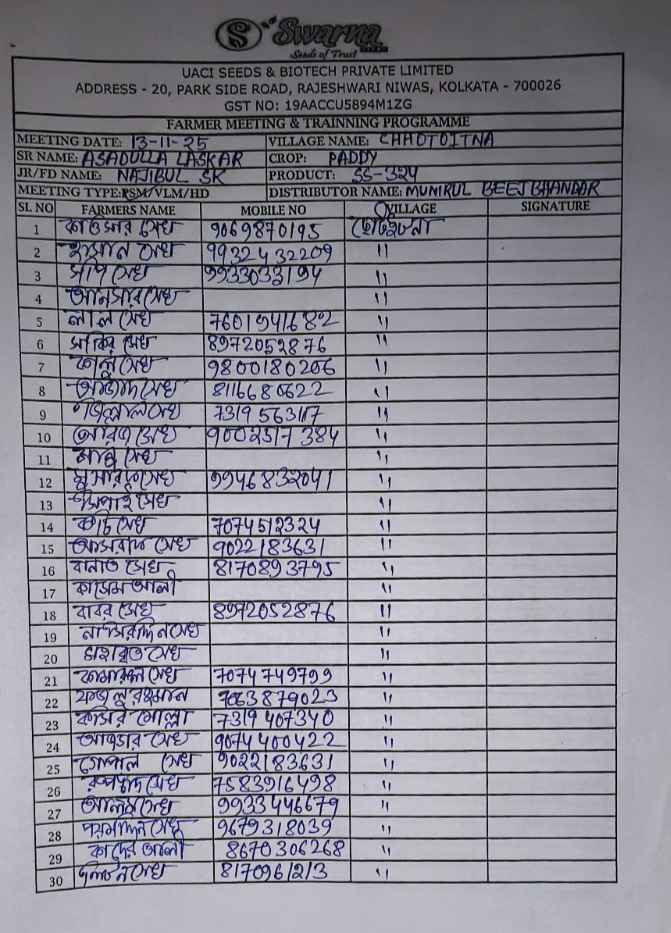 Swarna
Seeds of Trust
UACI SEEDS & BIOTECH PRIVATE LIMITED
ADDRESS - 20, PARK SIDE ROAD, RAJESHWARI NIWAS, KOLKATA - 700026
GST NO: 19AACCU5894M1ZG
FARMER MEETING & TRAINNING PROGRAMME
MEETING DATE: 13-11-25 VILLAGE NAME: CHHOTOITNA
SR NAME: ASADULLA LASKAR CROP: PADDY
JR/FD NAME: NAJIBUL SK PRODUCT: SS-324
MEETING TYPE:PSM/VLM/HD DISTRIBUTOR NAME: MUNIRUL BEEJ BHANDAR
SL NO FARMERS NAME MOBILE NO VILLAGE SIGNATURE
1 কাওসার সেখ 9069870195 ছোটইটনা
2 হাসান সেখ 9932432209 "
3 সেখ 9933033194 "
4 আনসার সেখ "
5 লাল সেখ 7601941682 "
6 সাকির সেখ 8972052876 "
7 কালু সেখ 9800180206 "
8 সেখ 8116680622 "
9 সেখ 7319563117 "
10 সেখ 9002517384 "
11 সেখ "
12 সেখ 9946832041 "
13 সেখ "
14 কচি সেখ 7074512324 "
15 আসরাফ সেখ 9022183631 "
16 সেখ 8170893795 "
17 কাসেম আলী "
18 বাবর সেখ 8972052876 "
19 নাসিরদ্দিন সেখ "
20 সেখ "
21 কামারুল সেখ 7074749799 "
22 ফজলুরহমান 7063879023 "
23 কাসির মোল্লা 7319407340 "
24 আকতার সেখ 9074400422 "
25 গোপাল সেখ 9022183631 "
26 রূপচাঁদ সেখ 7583916498 "
27 আলিম সেখ 9933446679 "
28 সেখ 9679318039 "
29 কাদের আলী 8670306268 "
30 সেখ 8170961213 "